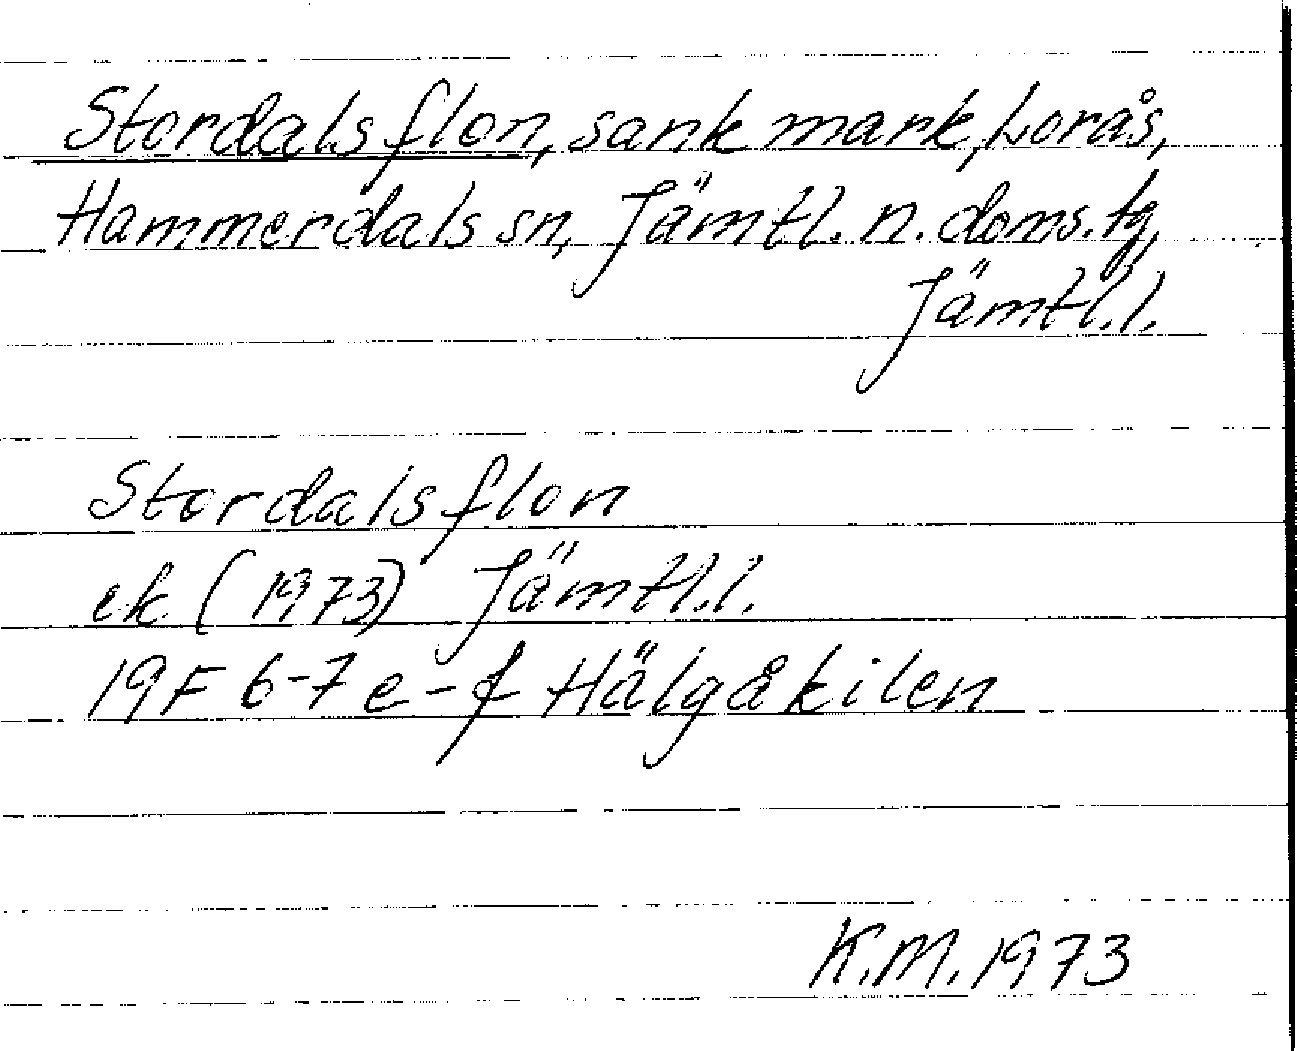 Stordalsflon, sank mark, Lorås,
Hammerdals sn, Jämtl. n. doms. tg,
Jämtl. l.
Stordalsflon
ek (1973) Jämtl. l.
19F 6-7 e-f Hälgåkilen
K.M. 1973